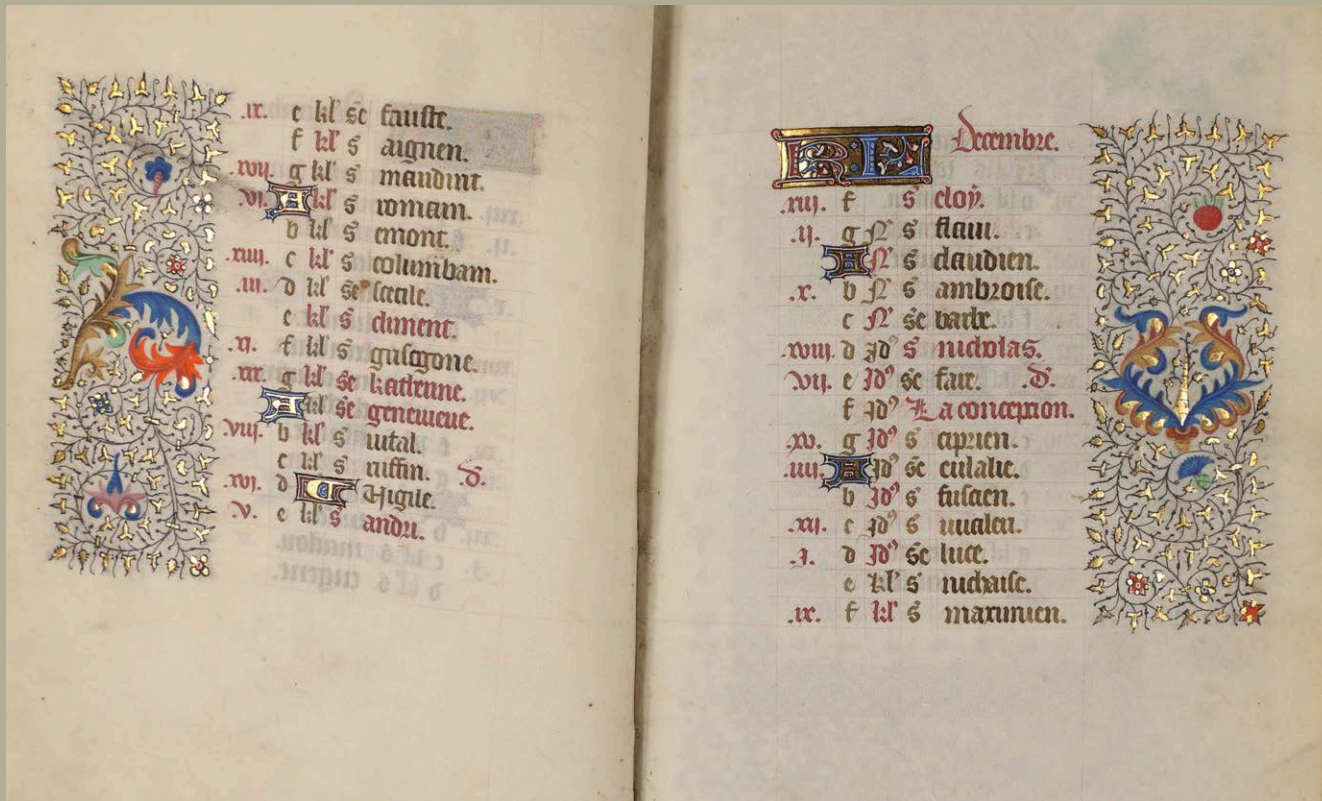 .ix. e kl' se fauste.
f kl' s aignen.
.xvii. g kl' s maudint.
.vi. A kl' s romain.
b kl' s emont.
.xiiii. c kl' s columbam.
.iii. d kl' se secile.
e kl' s climent.
.xi. f kl' s grisogone.
.xix. g kl' se katherine.
A kl' se genevieve.
.viii. b kl' s vital.
c kl' s ruffin. d'.
.xvi. d Vigile.
.v. e kl' s andri.
KL Decembre.
.xiii. f s eloy.
.ii. g N' s flavi.
A N' s claudien.
.x. b N' s ambroise.
c N' se barbe.
.xviii. d Id' s nicholas.
.vii. e Id' se fare. d'.
f Id' La conception.
.xv. g Id' s ciprien.
.iiii. A Id' se eulalie.
b Id' s fuscien.
.xii. c Id' s
.i. d Id' se luce.
e kl' s nichaise.
.ix. f kl' s maximien.